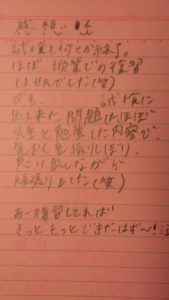 感想
試験も何とか終了。
ほぼ授業での復習
はせんでした(笑)
でも、試験に
出て来た問題はほぼ
先生と勉強した内容で、
気おくを振りしぼり、
思い出しながら
頑張りました(笑)
あー復習してれば
きっともっとできたはず〜!